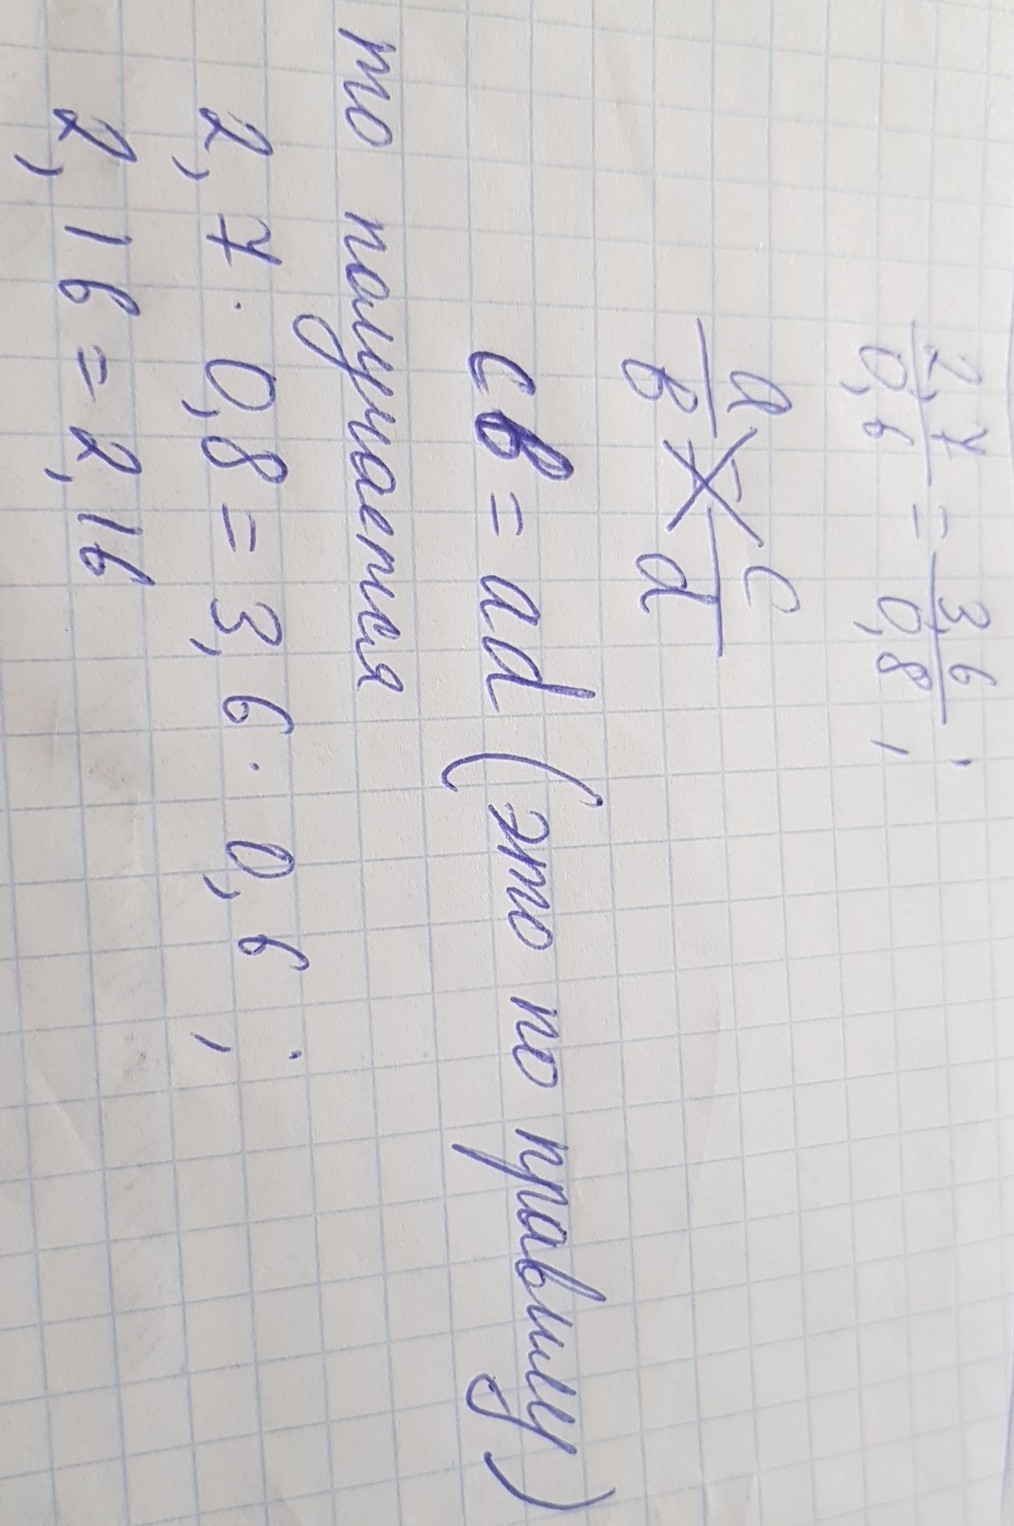 2,7/0,6 = 3,6/0,8 ;
a/в = c/d
cв = ad (это по правилу)
то получается
2,7 · 0,8 = 3,6 · 0,6 ;
2,16 = 2,16